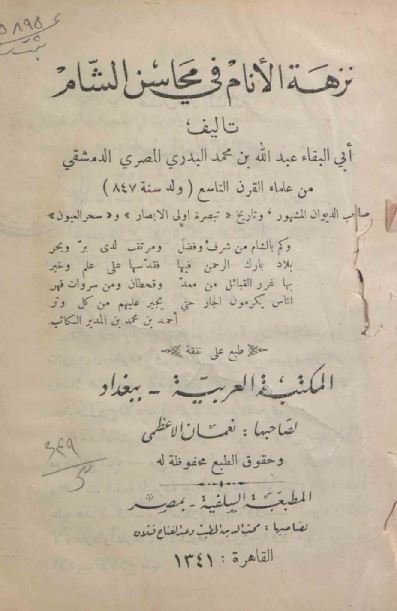 نزهة الأنام في محاسن الشام
تأليف
أبي البقاء عبد الله بن محمد البدري المصري الدمشقي
من علماء القرن التاسع ( ولد سنة ٨٤٧ )
صاحب الديوان المشهور ، وتاريخ « تبصرة اولى الابصار » و« سحر العيون »
وكم بالشام من شرف وفضل ومرتقب لدى برّ وبحر
بلاد بارك الرحمن فيها فقدّسها على علم وخبر
بها غرر القبائل من معدّ وقحطان ومن سروات فهر
اناس يكرمون الجار حتى يجير عليهم من كل وتر
أحمد بن محمد بن المدبر الكاتب
طبع على نفقة
المكتبة العربية ـ ببغداد
لصاحبها : نعمان الاعظمى
وحقوق الطبع محفوظة له
المطبعة السلفية ـ بمصر
لصاحبيها : محب الدين الخطيب وعبد الفتاح قتلان
القاهرة : ١٣٤١
٣٤٩